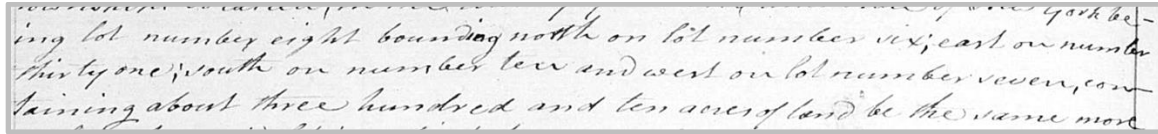 York be-
ing lot number eight bounding north on lot number six; east on number
thirty one; south on number ten and west on lot number seven, con-
taining about three hundred and ten acres of land be the same more